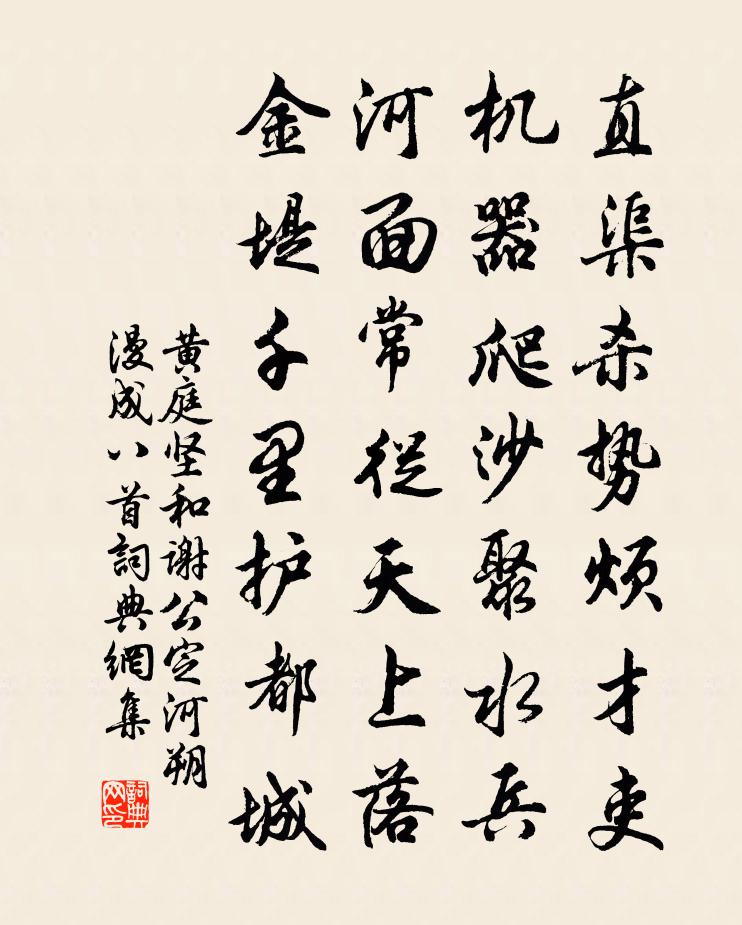 直渠杀势烦才吏
机器爬沙聚水兵
河面常从天上落
金堤千里护都城
黄庭坚和谢公定河朔
漫成八首詞典網集
詞典
网印